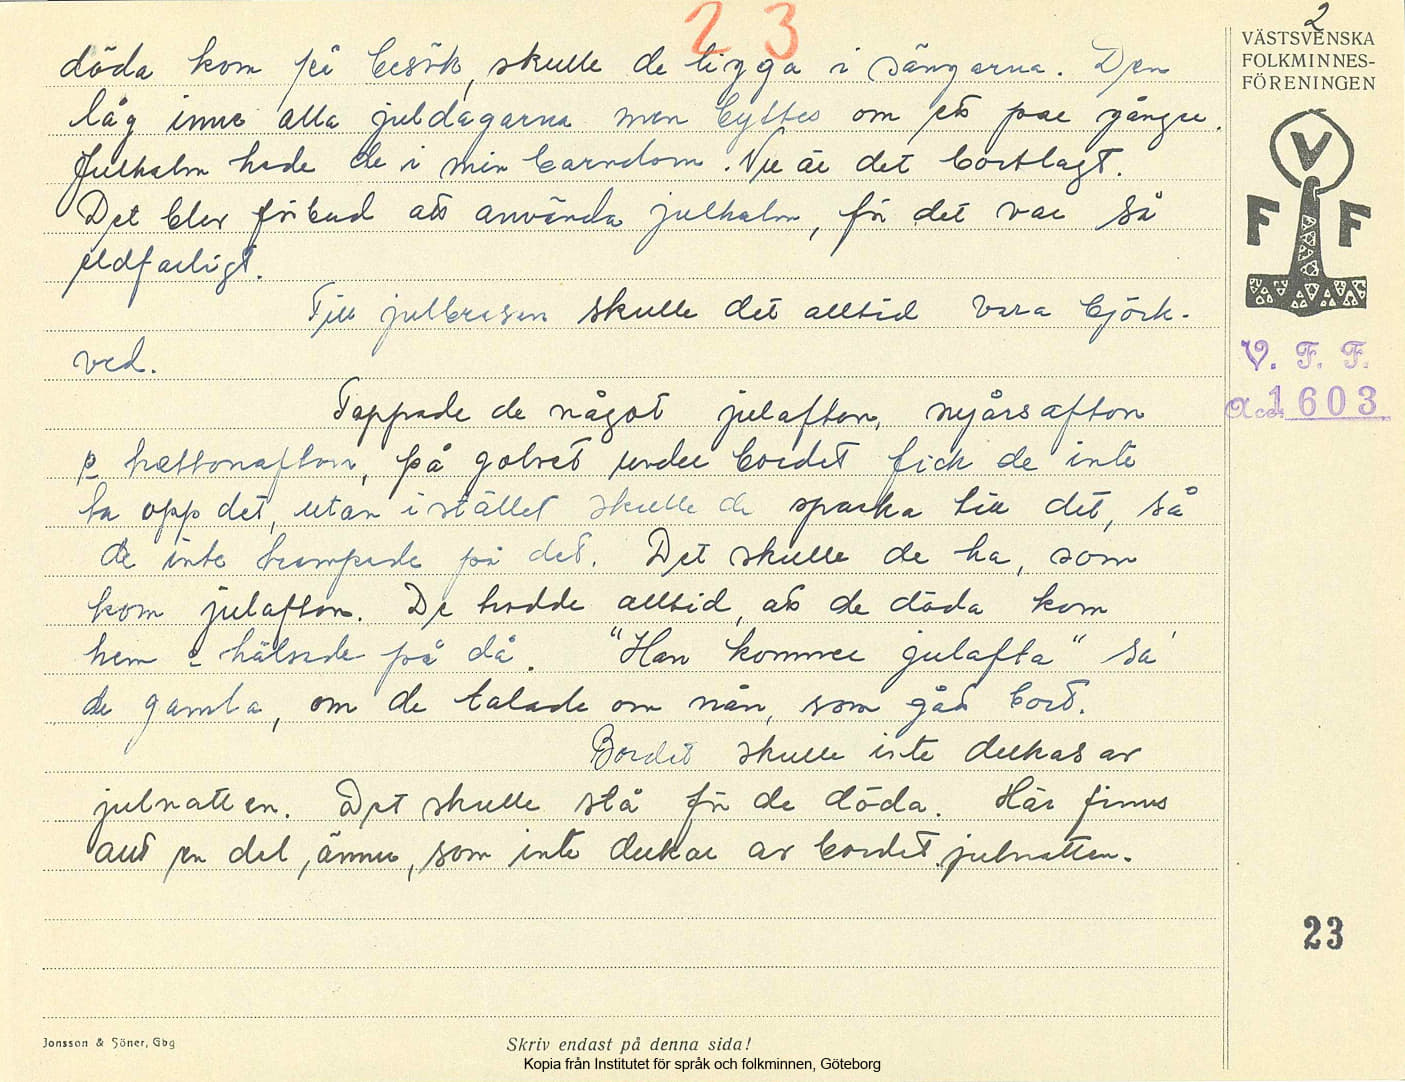 23
2
döda kom på besök, skulle de ligga i sängarna. Den
låg inne alla juldagarna men byttes om ett par gånger.
Julhalm hade de i min barndom. Nu är det bortlagt.
Det blev förbud att använda julhalm, för det var så
eldfarligt.
Till julbrasan skulle det alltid vara björk-
ved.
Tappade de något julafton, nyårsafton
o trettonafton, på golvet under bordet fick de inte
ta opp det, utan i stället skulle de sparka till det, så
de inte trampade på det. Det skulle de ha, som
kom julafton. De trodde alltid, att de döda kom
hem o hälsade på då. "Han kommer julafta" sa
de gamla, om de talade om nån, som gått bort.
Bordet skulle inte dukas av
julnatten. Det skulle stå för de döda. Här finns
allt en del, ännu, som inte dukar av bordet julnatten.
VÄSTSVENSKA
FOLKMINNES-
FÖRENINGEN
V
F F
V. F. F.
Acc. 1603
23
Jonsson & Söner, Gbg
Skriv endast på denna sida!
Kopia från Institutet för språk och folkminnen, Göteborg